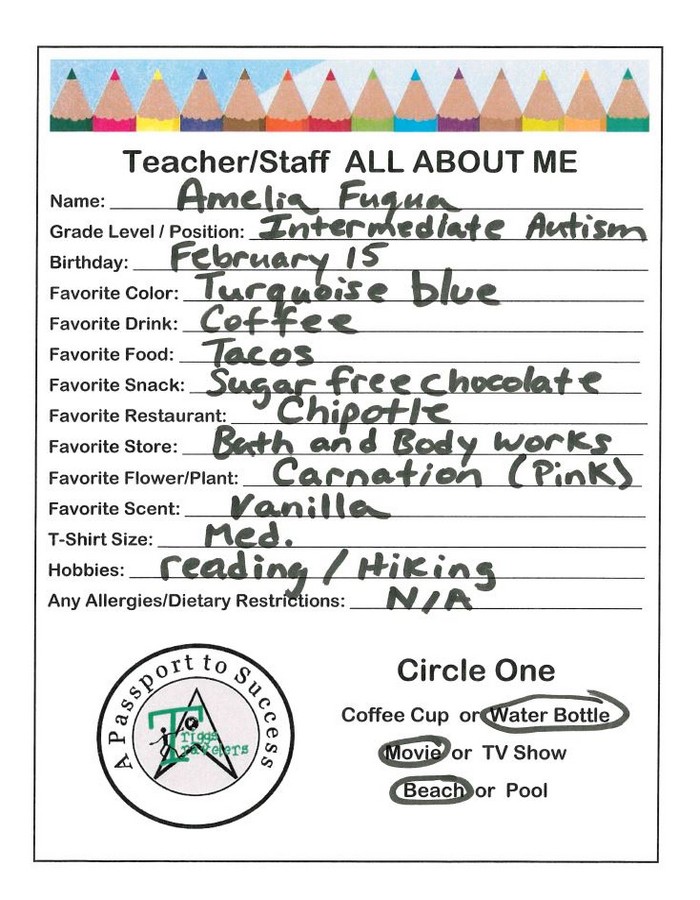 Teacher/Staff ALL ABOUT ME
Name: Amelia Fuqua
Grade Level / Position: Intermediate Autism
Birthday: February 15
Favorite Color: Turquoise blue
Favorite Drink: Coffee
Favorite Food: Tacos
Favorite Snack: Sugar free chocolate
Favorite Restaurant: Chipotle
Favorite Store: Bath and Body Works
Favorite Flower/Plant: Carnation (Pink)
Favorite Scent: Vanilla
T-Shirt Size: Med.
Hobbies: reading / Hiking
Any Allergies/Dietary Restrictions: N/A
A Passport to Success
Triggs
Travelers
Circle One
Coffee Cup or Water Bottle
Movie or TV Show
Beach or Pool